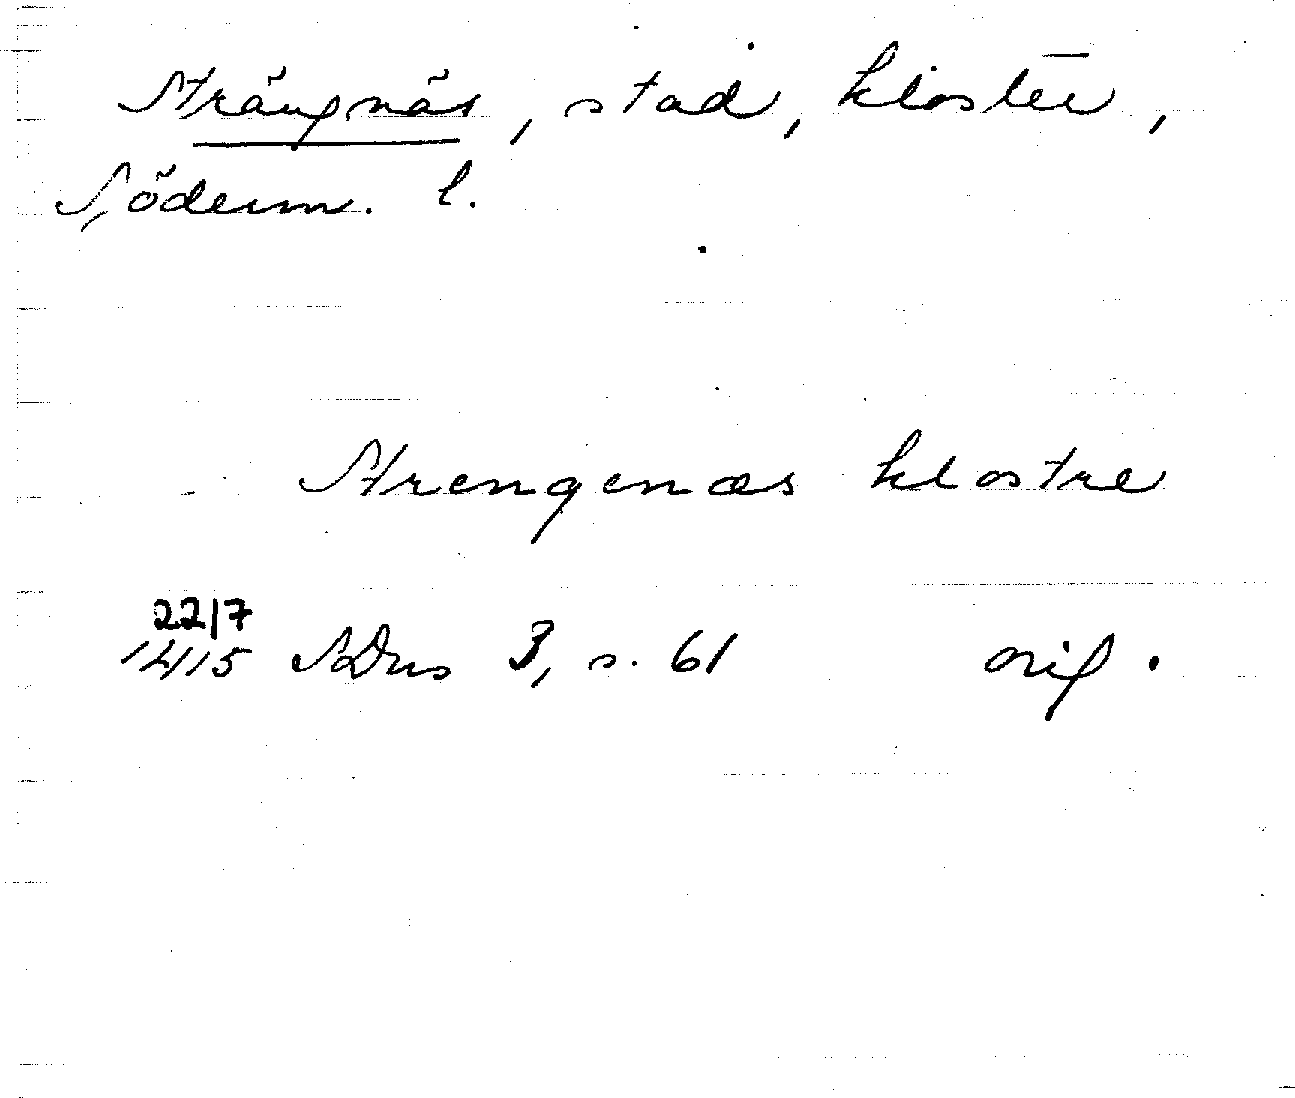 Strängnäs, stad, kloster,
Söderm. l.
Strengenæs klostre
22/7
1415 SDns 3, s. 61 orig.